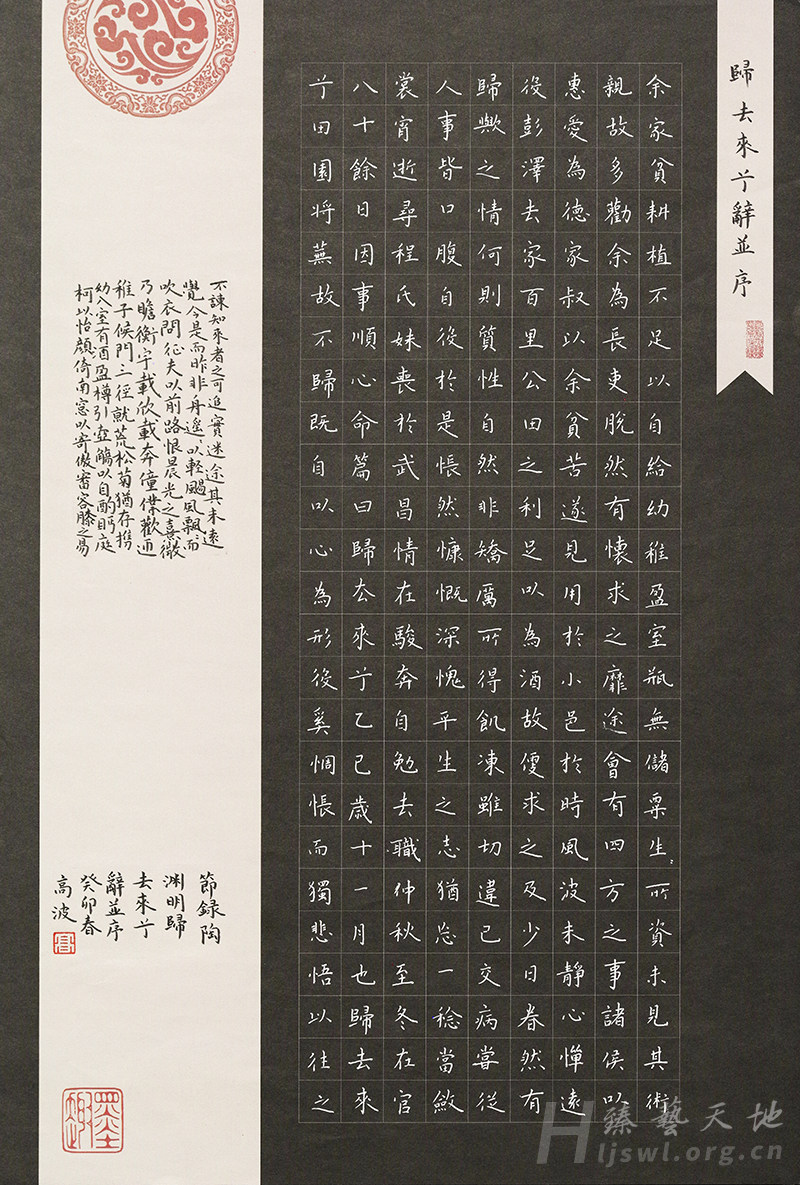 歸去來兮辭並序
余家貧耕植不足以自給幼稚盈室瓶無儲粟生〻所資未見其術
親故多勸余為長吏脫然有懷求之靡途會有四方之事諸侯以
惠愛為德家叔以余貧苦遂見用於小邑於時風波未靜心憚遠
役彭澤去家百里公田之利足以為酒故便求之及少日眷然有
歸歟之情何則質性自然非矯厲所得飢凍雖切違己交病嘗從
人事皆口腹自役於是悵然慷慨深愧平生之志猶望一稔當斂
裳宵逝尋程氏妹喪於武昌情在駿奔自勉去職仲秋至冬在官
八十餘日因事順心命篇曰歸去來兮乙巳歲十一月也歸去來
兮田園將蕪故不歸既自以心為形役奚惆悵而獨悲悟以往之
不諫知來者之可追實迷途其未遠
覺今是而昨非舟遙〻以輕颺風飄而
吹衣問征夫以前路恨晨光之熹微
乃瞻衡宇載欣載奔僮僕歡迎
稚子候門三徑就荒松菊猶存攜
幼入室有酒盈樽引壺觴以自酌眄庭
柯以怡顏倚南窗以寄傲審容膝之易
節錄陶
淵明歸
去來兮
辭並序
癸卯春
高波
臻藝天地
Hljswl.org.cn